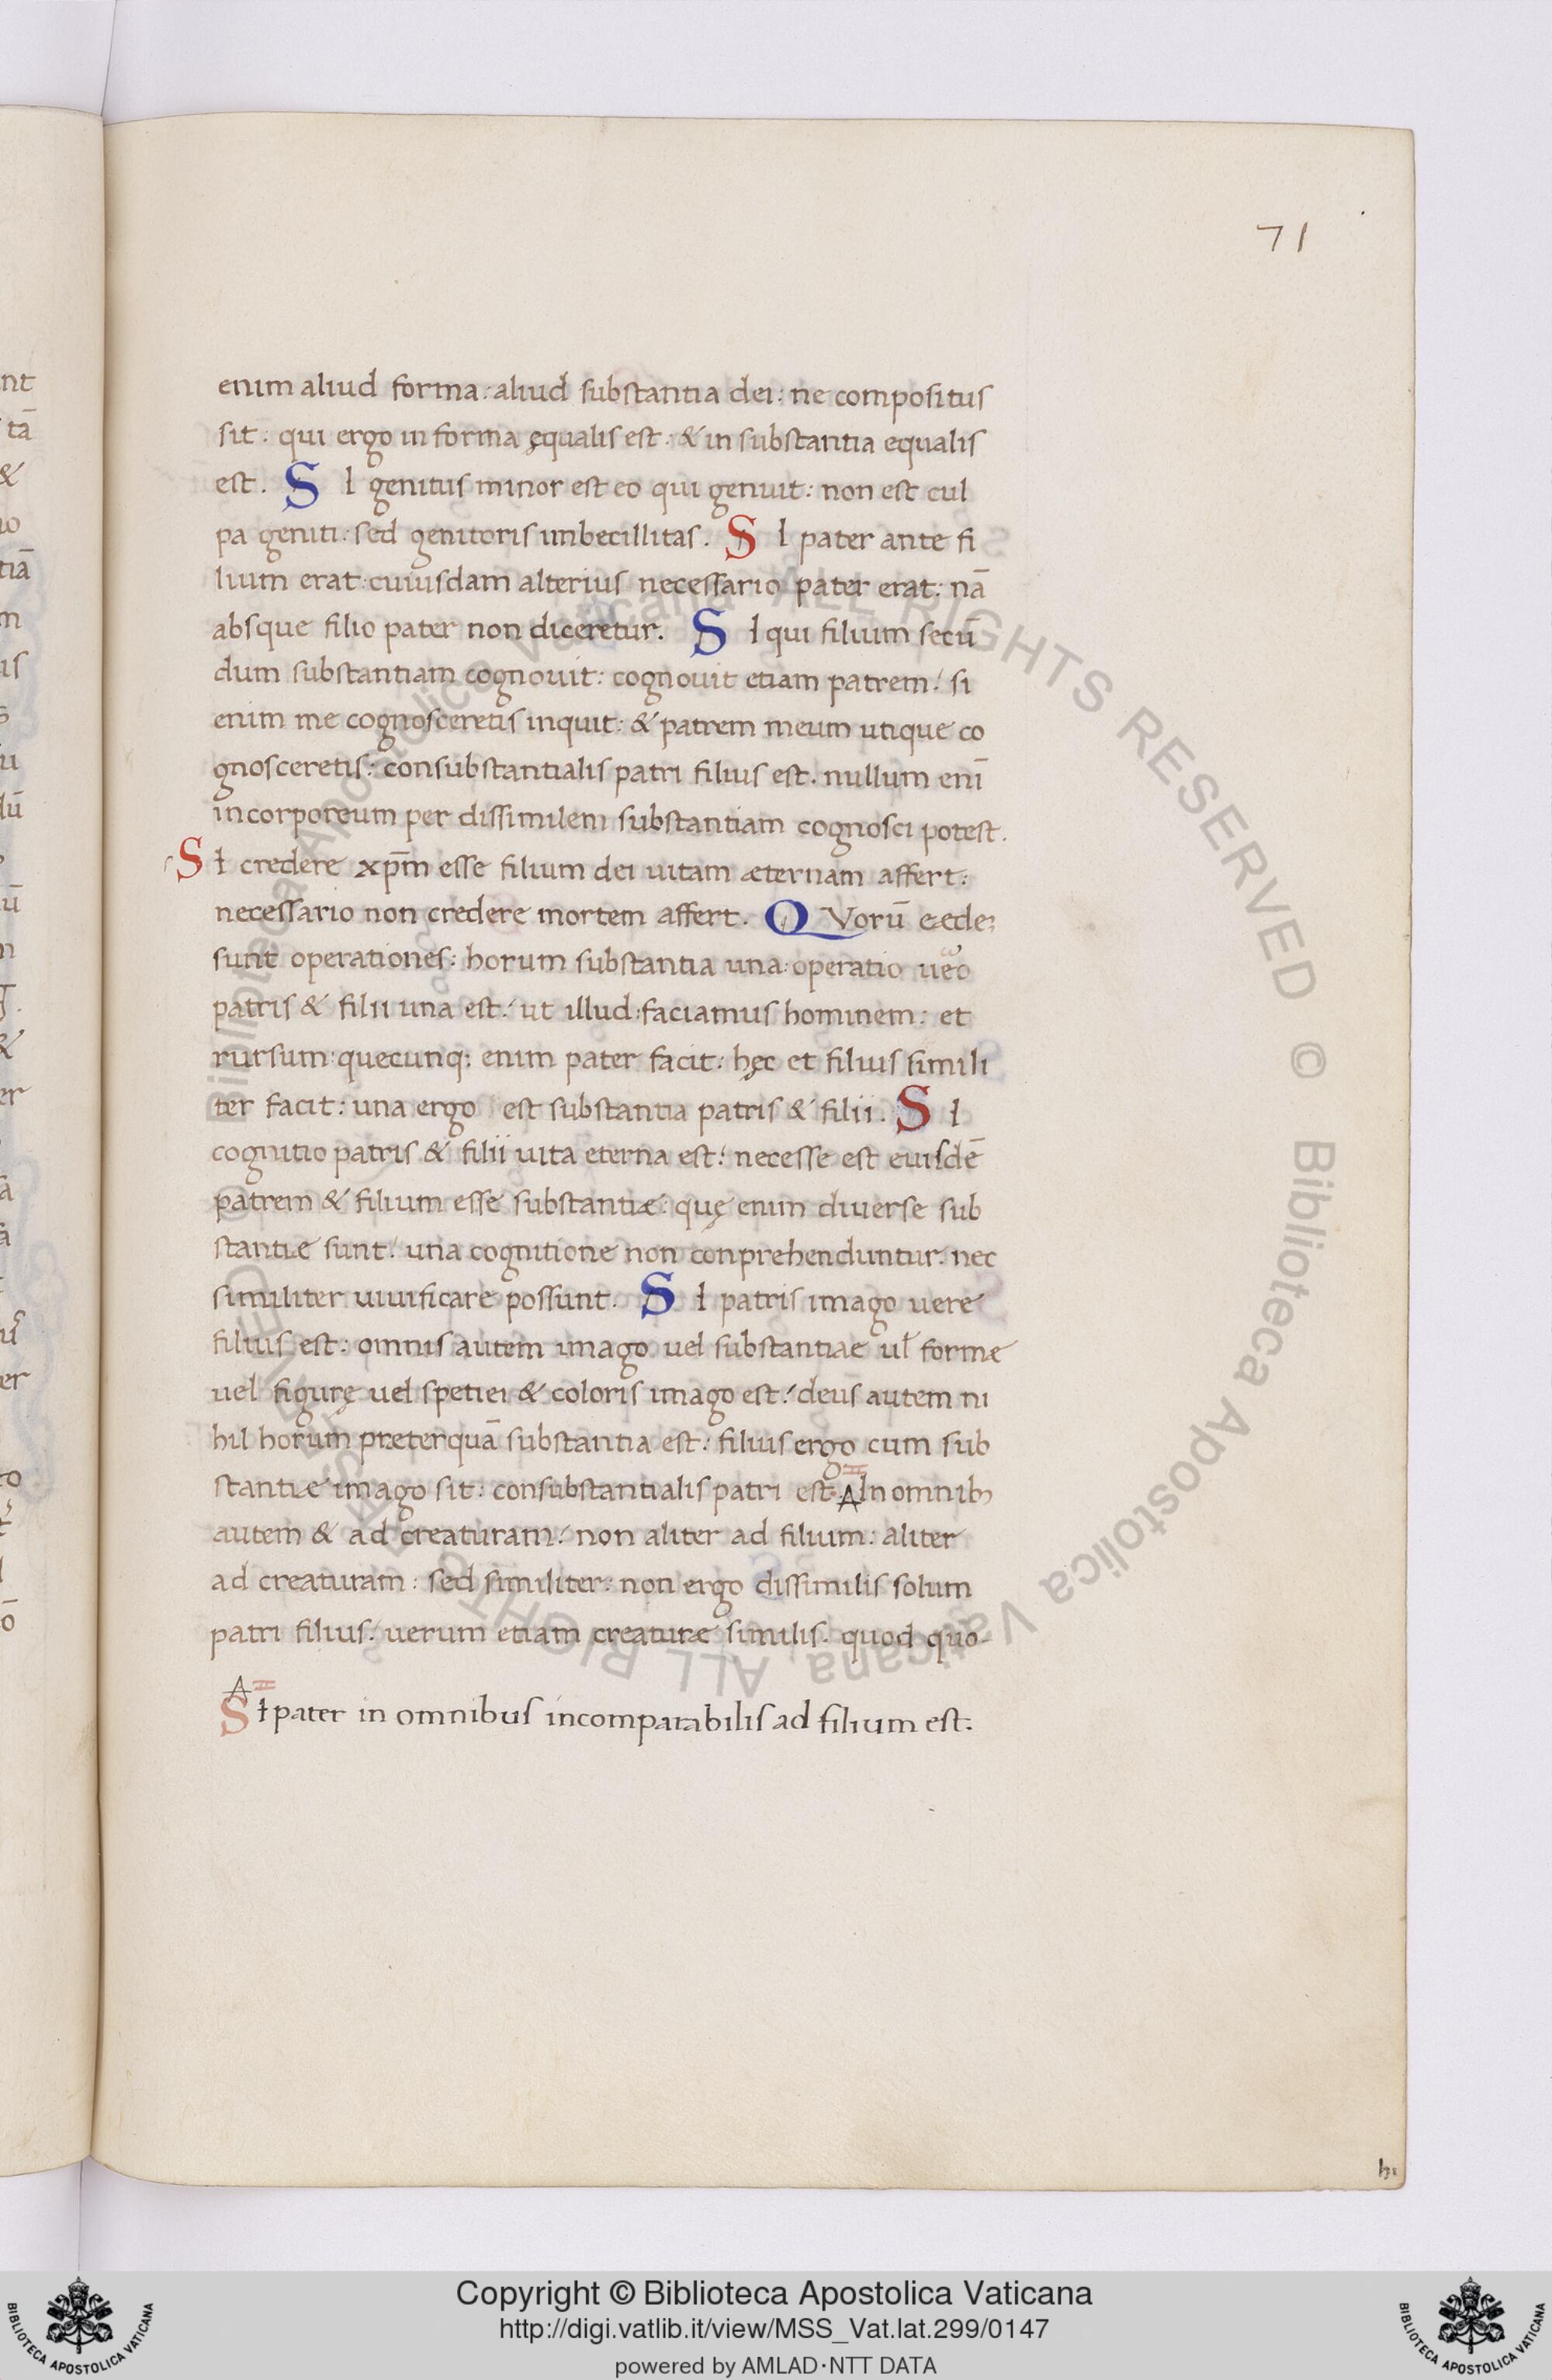 71
enim aliud forma: aliud substantia dei: ne compositus
sit: qui ergo in forma ęqualis est: & in substantia equalis
est. SI genitus minor est eo qui genuit: non est cul
pa geniti: sed genitoris imbecillitas. SI pater ante fi
lium erat: cuiusdam alterius necessario pater erat: nā
absque filio pater non diceretur. SI qui filium secū
dum substantiam cognouit: cognouit etiam patrem: si
enim me cognosceretis inquit: & patrem meum utique co
gnosceretis: consubstantialis patri filius est. nullum enī
incorporeum per dissimilem substantiam cognosci potest.
SI credere xp̄m esse filium dei uitam æternam affert:
necessario non credere mortem affert. QVorū eædē
sunt operationes: horum substantia una: operatio uero
patris & filii una est: ut illud: faciamus hominem: et
rursum: quecunq; enim pater facit: hęc et filius simili
ter facit: una ergo est substantia patris & filii. SI
cognitio patris & filii uita eterna est: necesse est eiusdē
patrem & filium esse substantiæ: quę enim diuerse sub
stantiæ sunt: una cognitione non conprehenduntur: nec
similiter uiuificare possunt. SI patris imago uere
filius est: omnis autem imago uel substantiae ul̄ formæ
uel figurę uel spetiei & coloris imago est: deus autem ni
hil horum præterquā substantia est: filius ergo cum sub
stantiæ imago sit: consubstantialis patri est. A In omnibꝫ
autem & ad creaturam: non aliter ad filium: aliter
ad creaturam: sed similiter: non ergo dissimilis solum
patri filius: uerum etiam creaturæ similis. quod quo-
A
SI pater in omnibus incomparabilis ad filium est.
Biblioteca Apostolica Vaticana ALL RIGHTS RESERVED © Biblioteca Apostolica Vaticana, ALL RIGHTS RESERVED ©
Copyright © Biblioteca Apostolica Vaticana
http://digi.vatlib.it/view/MSS_Vat.lat.299/0147
powered by AMLAD·NTT DATA
BIBLIOTECA APOSTOLICA VATICANA
BIBLIOTECA APOSTOLICA VATICANA